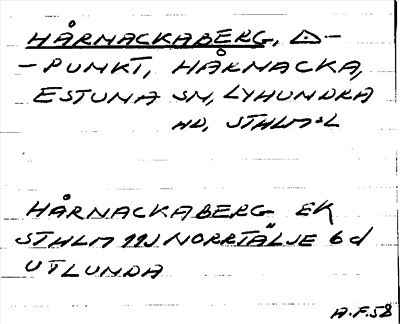 HÅRNACKABERG, △-
-PUNKT, HÅRNACKA,
ESTUNA SN, LYHUNDRA
HD, STHLMSL
HÅRNACKABERG EK
STHLM 11J NORRTÄLJE 6d
UTLUNDA
A.F.58